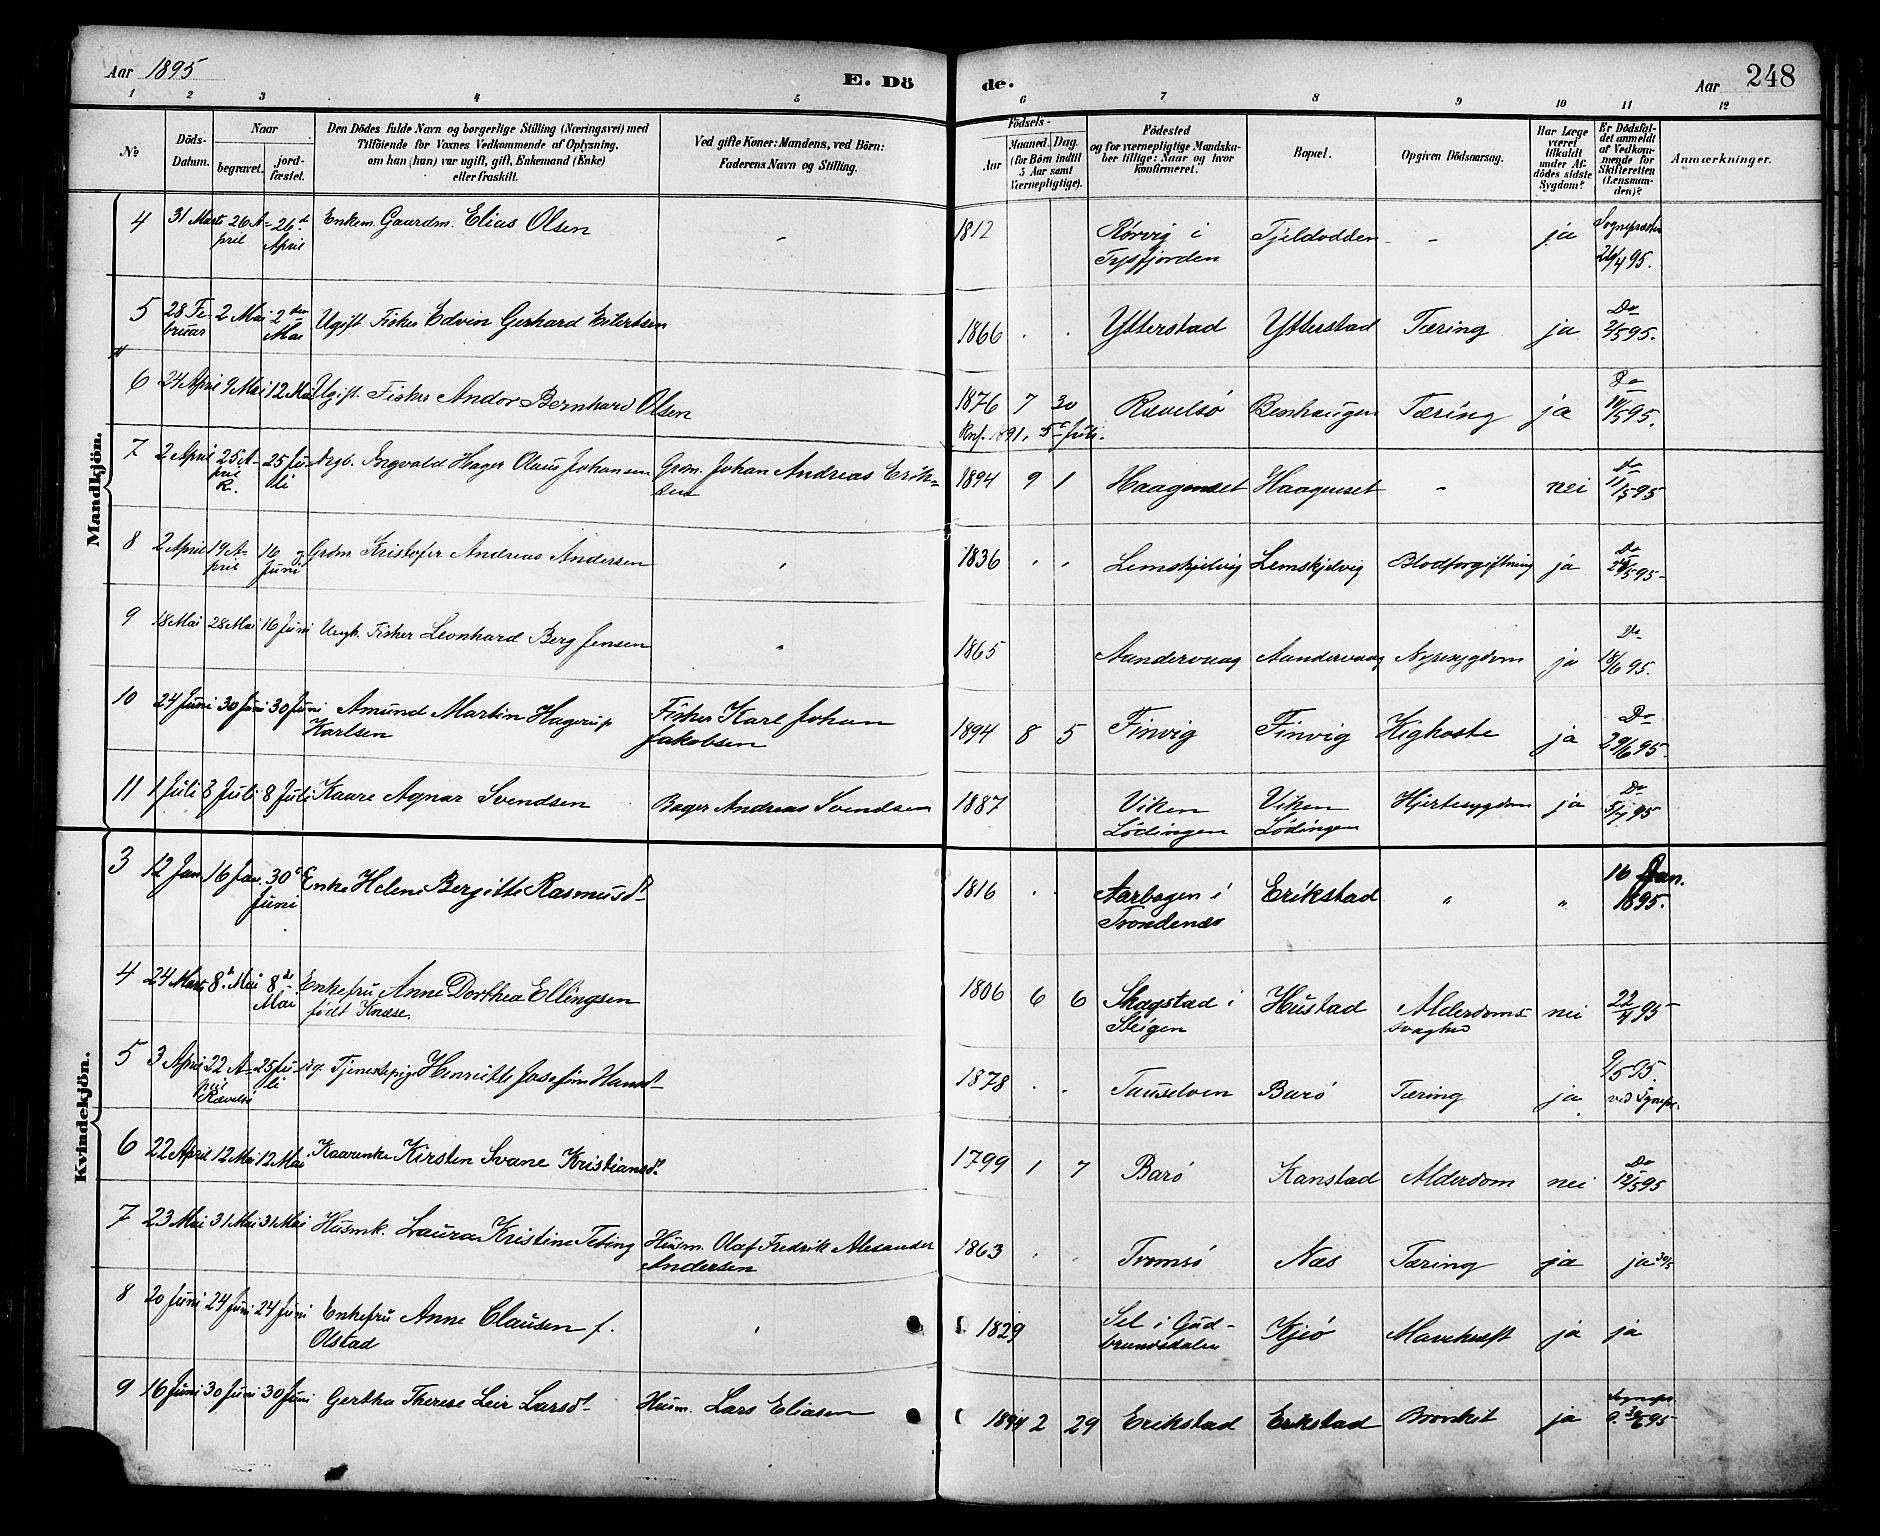 Aar 1895
E. Döde.
Aar 248
1 2 3 4 5 6 7 8 9 10 11 12
No
Döds-Datum.
Naar
begravet.
jord-fæstet.
Den Dödes fulde Navn og borgerlige Stilling (Næringsvei) med
Tilföiende for Voxnes Vedkommende af Oplysning,
om han (hun) var ugift, gift, Enkemand (Enke)
eller fraskilt.
Ved gifte Koner: Mandens, ved Börn:
Faderens Navn og Stilling.
Födsels-
Aar
Maaned. Dag.
(for Börn indtil
5 Aar samt
Værnepligtige).
Födested
og for værnepligtige Mandska-
ber tillige: Naar og hvor
konfirmeret.
Bopæl.
Opgiven Dödsaarsag.
Har Læge
været
tilkaldt
under Af-
dödes sidste
Sygdom?
Er Dödsfal-
det anmeldt
af Vedkom-
mende for
Skifteretten
(Lensman-
den)?
Anmærkninger.
Mandkjön.
4 31 Marts 26 April 26d April Enkem. Gaardm. Elias Olsen " 1812 Rørvig i Tysfjorden Tjeldodden - ja Sognepræsten 26/4 95.
5 28 Februar 2 Mai 2den Mai Ugift Fisker Edvin Gerhard Eilertsen 1866 . . Ytterstad Ytterstad Tæring ja Do 2/5 95.
6 24 April 9 Mai 12 Mai Ugift. Fisker Andor Bernhard Olsen 1876 7 30 Knf. 1891, 5 Juli. Rævelsø Tæring ja Do 95.
7 2 April 25 April R. 25 Juli Ingvald Hager Olaus Johansen Grdm. Johan Andreas Eriksen 1894 9 1 Haagenset Haagenset " nei Do 11/5 95
8 2 April 19 April 16 Juni Grdm Kristofer Andreas Andersen " 1836 " " Lemskjelvig Lemskjelvig Blodforgiftning ja Do 95-
9 18 Mai 28 Mai 16 Juni Ungk. Fisker Leonhard Berg Jensen " 1865 Aandervaag Aandervaag Nyresygdom ja Do 18/6 95.
10 24 Juni 30 Juni 30 Juni Amund Martin Hagerup Karlsen Fisker Karl Johan Jakobsen 1894 8 5 Finvig Finvig Kighoste ja Do 29/6 95-
11 1 Juli 8 Juli 8 Juli Kaare Agnar Svendsen Bager Andreas Svendsen 1887 Viken Lødingen Viken Lødingen Hjertesygdom ja Do 5/7 95
Kvindekjön.
3 12 Jan 16 Jan. 30 Juni Enke Helene Bergitte Rasmusdr 1816 . . Aarbogen i Trondenæs Erikstad " " 16 Jan. 1895.
4 24 Marts 8. Mai 8de Mai Enkefru Anne Dorthea Ellingsen født Knæse. 1806 6 6 Skagstad i Steigen Hustad Alderdomssvaghed nei 22/4 95-
5 3 April 22 April Rævelsø 25 Juli Ug. Tjenestepige Henriette Josefine Hansdr 1878 . . Barø Tæring ja 9/5 95. ved Sognepr.
6 22 April 12 Mai 12 Mai Kaarenke Kirsten Svane Kristiansdr 1799 1 7 Barø Kanstad Alderdom nei Do 12/5 95
7 23 Mai 31 Mai 31 Mai Husmk. Laura Kristine Teting Husm. Olaf Fredrik Alexander Andersen 1863 . . Tromsø Næs Tæring ja ja 30/5
8 20 Juni 24 Juni 24 Juni Enkefru Anne Clausen f. Olstad " 1829 Sel i Gudbrandsdalen Kjeø Mavekræft ja ja
9 16 Juni 30 Juni 30 Juni Gertha Therese Leir Larsdr Husm. Lars Eliasen 1894 2 29 Erikstad Erikstad Bronkit ja Sognepr. 30/6 95-